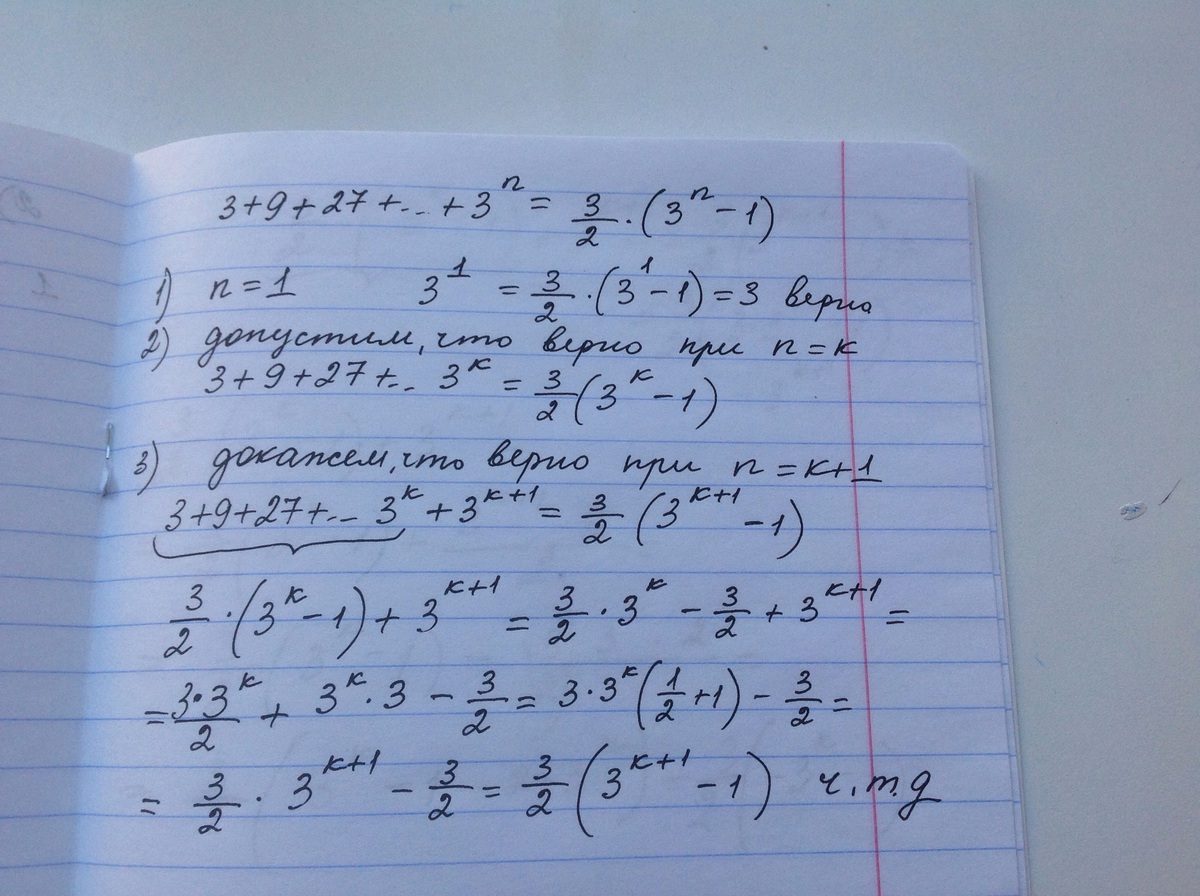 3+9+27+... + 3^n = 3/2 · (3^n - 1)
1) n = 1 3^1 = 3/2 · (3^1 - 1) = 3 верно
2) допустим, что верно при n = к
3+9+27+.. 3^к = 3/2 (3^к - 1)
3) докажем, что верно при n = к+1
3+9+27+... 3^к + 3^(к+1) = 3/2 (3^(к+1) - 1)
3/2 · (3^к - 1) + 3^(к+1) = 3/2 · 3^к - 3/2 + 3^(к+1) =
= 3·3^к/2 + 3^к · 3 - 3/2 = 3·3^к (1/2 + 1) - 3/2 =
= 3/2 · 3^(к+1) - 3/2 = 3/2 (3^(к+1) - 1) ч.т.д